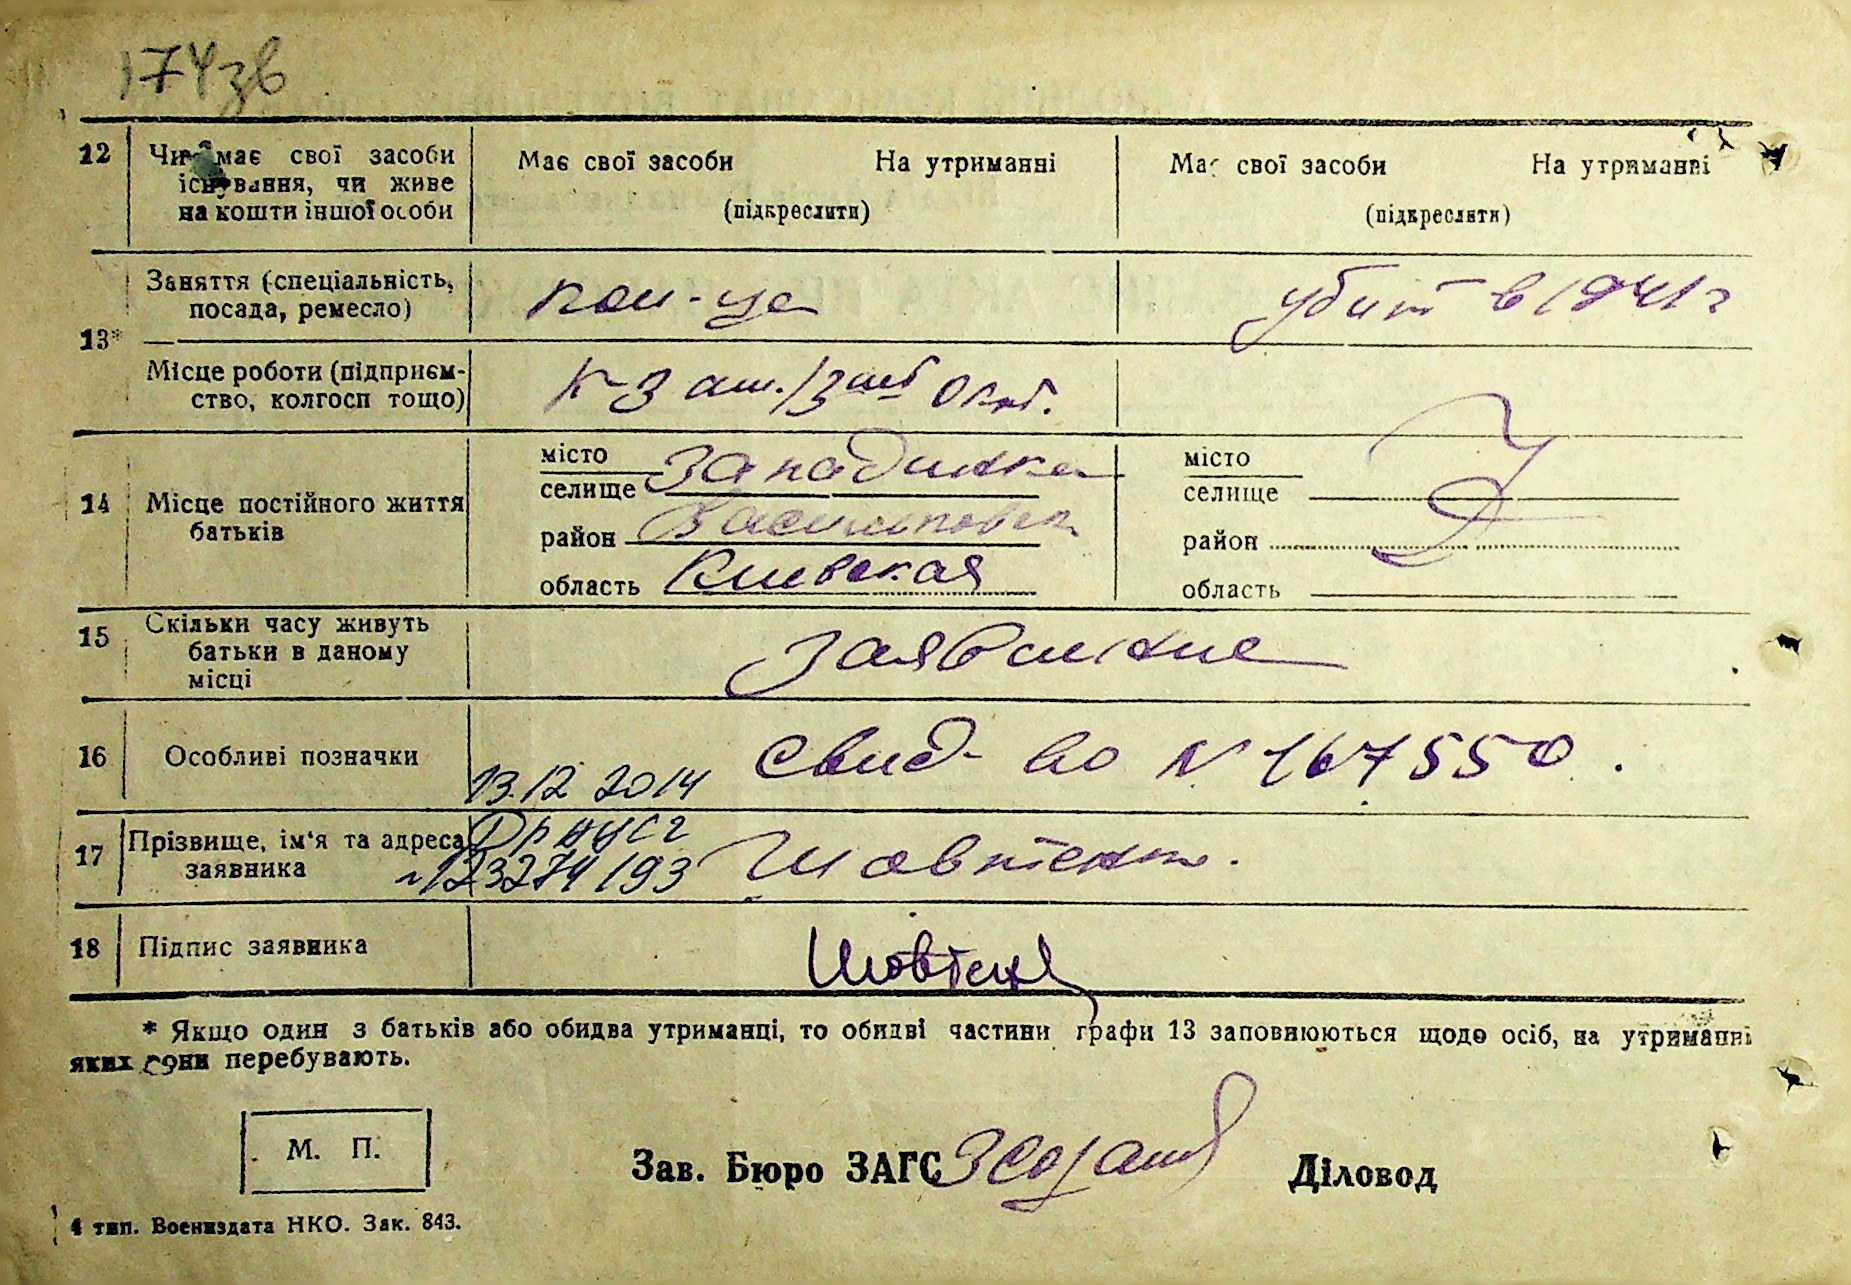 174зв
12 Чи має свої засоби існування, чи живе на кошти іншої особи
Має свої засоби На утриманні
(підкреслити)
Має свої засоби На утриманні
(підкреслити)
13*
Заняття (спеціальність, посада, ремесло)
кол-ца
убит в 1941 г
Місце роботи (підприємство, колгосп тощо)
к-з им. 13 Окт.
14 Місце постійного життя батьків
місто
селище Западинка
район Васильковск
область Киевская
місто
селище
район
область
15 Скільки часу живуть батьки в даному місці
заявление
16 Особливі позначки
13.12 2014
Свид-во N 167550.
17 Прізвище, ім'я та адреса заявника
ДРАЦСГ
№ 123274193
Шовтенко.
18 Підпис заявника
Шовтенко
* Якщо один з батьків або обидва утриманці, то обидві частини графи 13 заповнюються щодо осіб, на утриманні
яких вони перебувають.
М. П.
Зав. Бюро ЗАГС
Діловод
4 тип. Воениздата НКО. Зак. 843.